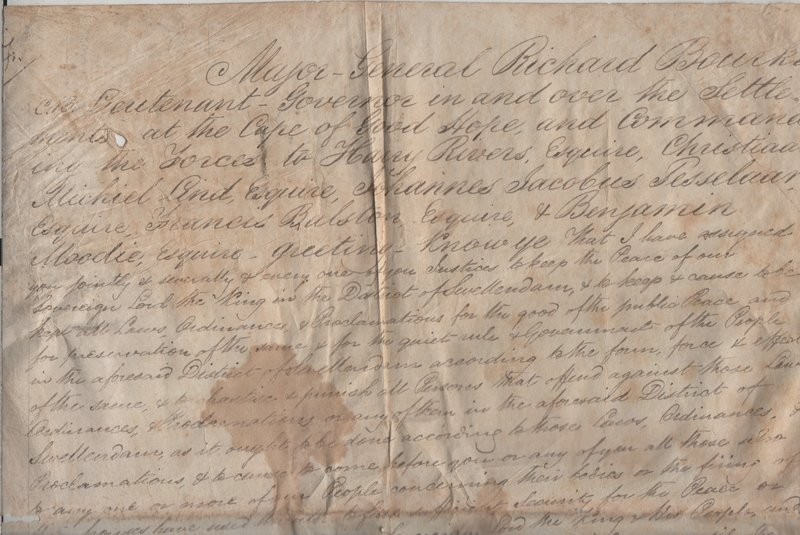 Major-General Richard Bourke
C.B. Lieutenant-Governor in and over the Settle-
ment at the Cape of Good Hope, and Command-
ing the Forces to Harry Rivers, Esquire, Christiaan
Michiel Lind, Esquire, Johannes Jacobus Tesselaar,
Esquire, Francis Ralston, Esquire, & Benjamin
Moodie, Esquire - greeting - Know ye That I have assigned
you jointly & severally & every one of you Justices to keep the Peace of our
Sovereign Lord the King in the District of Swellendam, & to keep & cause to be
kept all Laws, Ordinances, & Proclamations for the good of the public Peace and
for preservation of the same & for the quiet rule & Government of the People
in the aforesaid District of Swellendam according to the form, force & effect
of the same, & to chastise & punish all Persons that offend against those Laws
Ordinances, & Proclamations or any of them in the aforesaid District of
Swellendam, as it ought to be done according to those Laws, Ordinances, &
Proclamations, & to cause to come before you or any of you all those who
to any one or more of our People concerning their bodies or the firing of
their houses have used threats to find sufficient Security for the Peace or
the King & His People, and